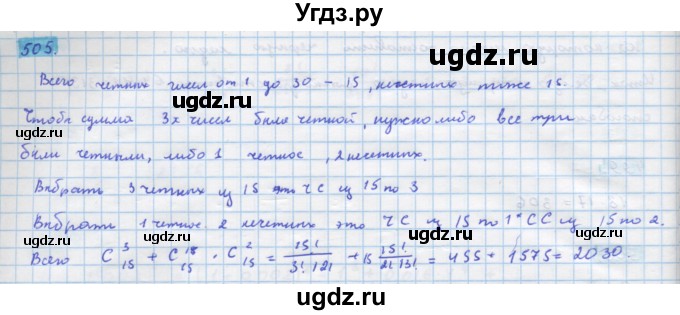 Угдз.ру
505.
Всего четных чисел от 1 до 30 - 15, нечетных тоже 15.
Чтобы сумма 3х чисел была четной, нужно либо все три
были четными, либо 1 четное, 2 нечетных.
Выбрать 3 четных из 15 это ЧС из 15 по 3
Выбрать 1 четное 2 нечетных это ЧС из 15 по 1 * СС из 15 по 2.
Всего C³₁₅ + C₁₅ · C²₁₅ = 15!/3! 12! + 15 15!/2! 13! = 455 + 1575 = 2030.
ugdz.ru
ugdz.ru
ugdz.ru
ugdz.ru
ugdz.ru
ugdz.ru
ugdz.ru
ugdz.ru
ugdz.ru